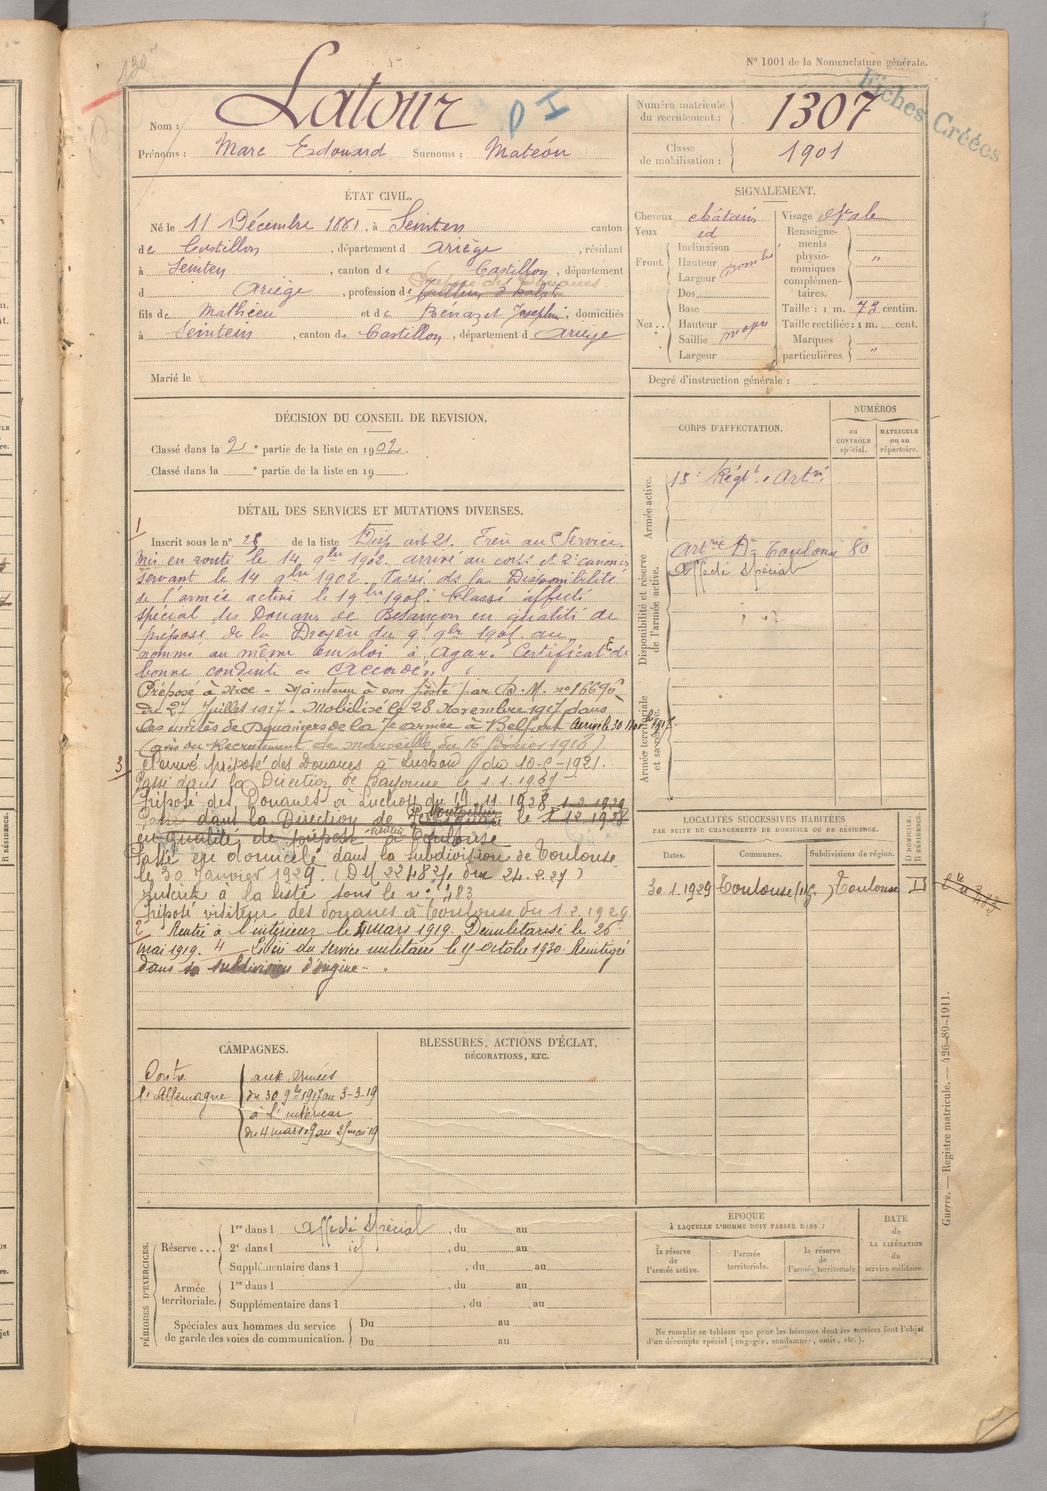 N° 1001 de la Nomenclature générale.
Fiches Créées
Nom : Latour
Prénoms : Marc Edouard Surnoms : Mateón
Numéro matricule du recrutement : 1307
Classe de mobilisation : 1901
ÉTAT CIVIL.
Né le 11 Décembre 1881, à Seintein canton
de Castillon, département d Ariège, résidant
à Seintein, canton de Castillon, département
d Ariège, profession de
fils de Mathieu et de Benazet Josephine, domiciliés
à Seintein, canton de Castillon, département d Ariège
Marié le
SIGNALEMENT.
Cheveux châtain
Yeux id
Front Inclinaison
Hauteur
Largeur
Nez Dos
Base
Hauteur
Saillie moyen
Largeur
Visage Ovale
Renseignements physionomiques complémentaires. "
Taille : 1 m. 73 centim.
Taille rectifiée : 1 m. cent.
Marques particulières "
Degré d'instruction générale :
DÉCISION DU CONSEIL DE REVISION.
Classé dans la 2e partie de la liste en 1902.
Classé dans la e partie de la liste en 19
CORPS D'AFFECTATION.
NUMÉROS
au CONTRÔLE spécial.
MATRICULE ou au répertoire.
Armée active.
18e Régt d'Artie
Disponibilité et réserve de l'armée active.
Artie Don Toulouse 80
Affecté Spécial
Armée territoriale et sa réserve.
DÉTAIL DES SERVICES ET MUTATIONS DIVERSES.
1
Inscrit sous le n° 28 de la liste Disp art 21. Frère au Service.
Mis en route le 14 9bre 1902. arrivé au corps et 2e canonnier
servant le 14 9bre 1902. Passé ds la Disponibilité
de l'armée active le 1905. Classé affecté
spécial des Douanes de Besançon en qualité de
préposé de la du 9 9bre 1905. au
nommé au même Emploi à Agay. Certificat de
bonne conduite Accordé.
Préposé à Nice - Maintenu à son poste par D. M. n° 16696
du 27 Juillet 1917 - Mobilisé le 28 Novembre 1917 dans
les unités de Douaniers de la 7e armée à Belfort arrivé le 30 Nov
(avis du Recrutement de Marseille du 16 février 1918)
3
préposé des Douanes à Luchon du 10-6-1921.
Passé dans la Direction de Bayonne le 1.1.1927
Préposé des Douanes à Luchon du 11 1928 1-2-1929
Passé dans la Direction de Montpellier le 1 12 1928
en qualité de préposé à Toulouse
Passé en domicile dans la subdivision de Toulouse
le 30 Janvier 1929. (DM 22482/ du 24.2.27)
Inscrit à la liste sous le n° 483
Préposé visiteur des douanes à Toulouse du 1 2 1929
2 Rentré à l'intérieur le 4 mars 1919. Démilitarisé le 26
mai 1919. 4 Libéré du service militaire le octobre 1930 Réintégré
dans sa subdivision d'origine.
LOCALITÉS SUCCESSIVES HABITÉES
PAR SUITE DE CHANGEMENTS DE DOMICILE OU DE RÉSIDENCE.
Dates. Communes. Subdivisions de région. D. DOMICILE. R. RÉSIDENCE.
30.1.1929 Toulouse Toulouse D
CAMPAGNES.
Contre l'Allemagne
aux armées
du 30 9bre 1917 au 3-3-19
à l'intérieur
du 4 mars 19 au 25 mai 19
BLESSURES, ACTIONS D'ÉCLAT,
DÉCORATIONS, ETC.
PÉRIODES D'EXERCICES.
Réserve... 1re dans l Affecté Spécial, du au
2e dans l id, du au
Supplémentaire dans l , du au
Armée territoriale. 1re dans l , du au
Supplémentaire dans l , du au
Spéciales aux hommes du service de garde des voies de communication. Du au
Du au
ÉPOQUE
À LAQUELLE L'HOMME DOIT PASSER DANS :
la réserve de l'armée active.
l'armée territoriale.
la réserve de l'armée territoriale
DATE de LA LIBÉRATION du service militaire.
Ne remplir ce tableau que pour les hommes dont les services font l'objet
d'un décompte spécial (engagés, condamnés, omis, etc.).
Guerre. — Registre matricule. — 426-89-1911.